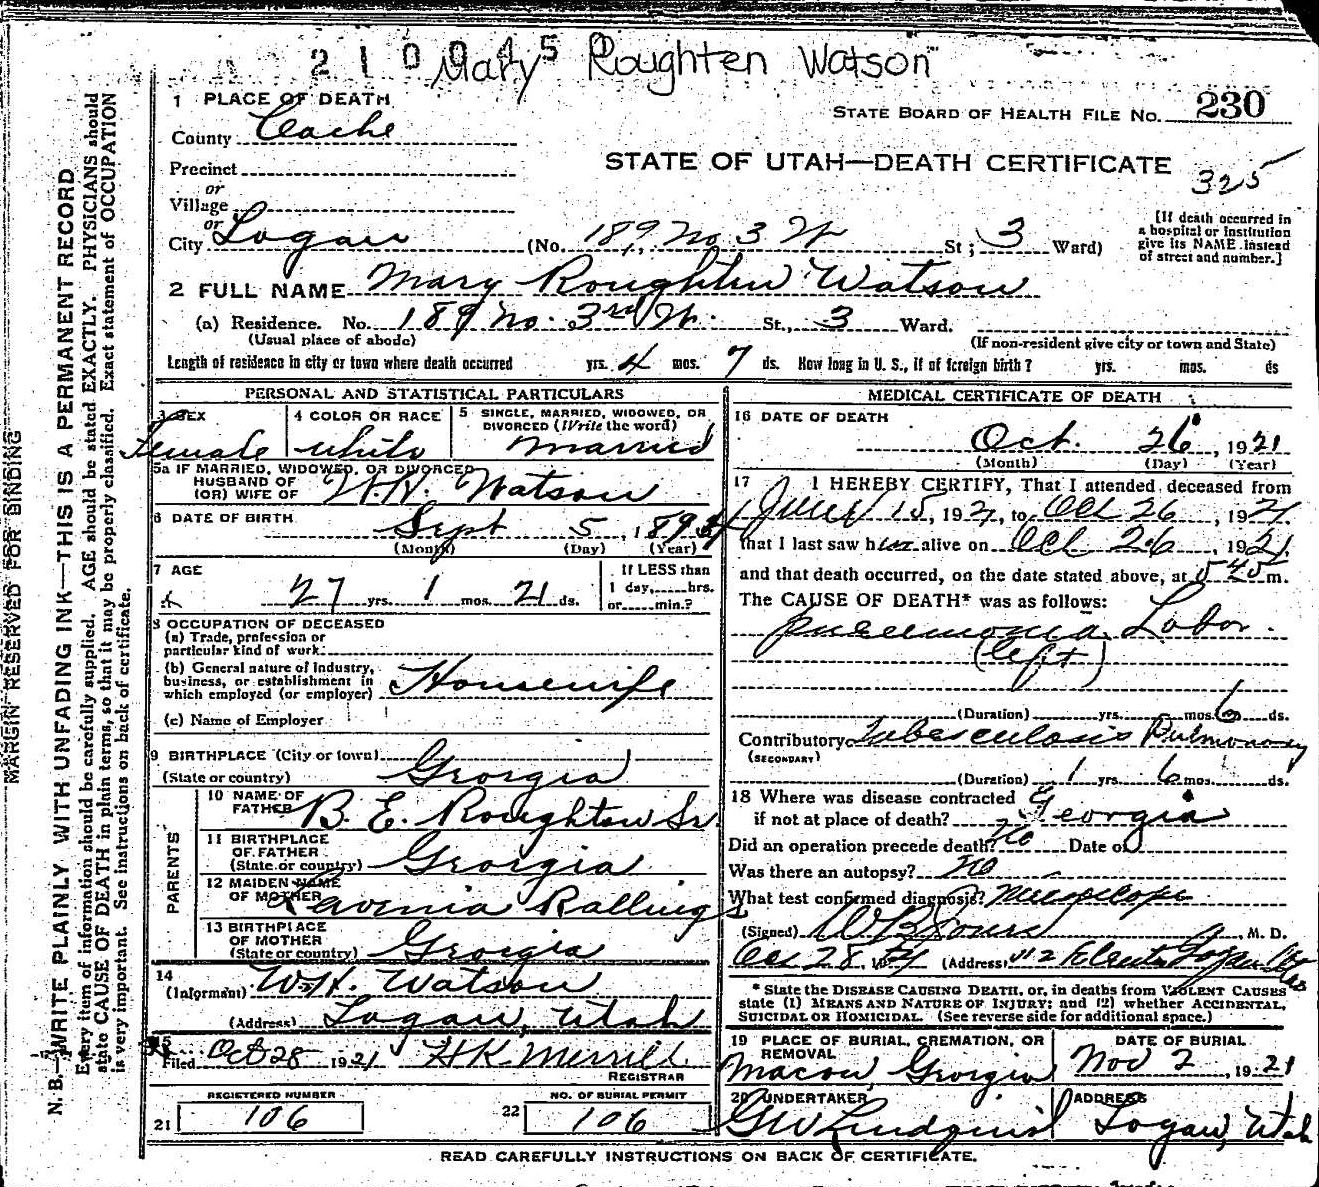 210045
Mary Roughten Watson
1 PLACE OF DEATH
County Cache
STATE BOARD OF HEALTH FILE No. 230
Precinct
STATE OF UTAH—DEATH CERTIFICATE
325
or
Village
or
City Logan (No. 189 No 3 W St; 3 Ward)
[If death occurred in
a hospital or institution
give its NAME instead
of street and number.]
2 FULL NAME Mary Roughten Watson
(a) Residence. No. 189 No. 3rd W. St., 3 Ward.
(Usual place of abode) (If non-resident give city or town and State)
Length of residence in city or town where death occurred yrs. 4 mos. 7 ds. How long in U. S., if of foreign birth? yrs. mos. ds
PERSONAL AND STATISTICAL PARTICULARS
3 SEX
Female
4 COLOR OR RACE
white
5 SINGLE, MARRIED, WIDOWED, OR
DIVORCED (Write the word)
married
5a IF MARRIED, WIDOWED, OR DIVORCED
HUSBAND OF
(OR) WIFE OF W.H. Watson
6 DATE OF BIRTH
Sept 5, 1894
(Month) (Day) (Year)
7 AGE
27 yrs. 1 mos. 21 ds.
If LESS than
1 day, hrs.
or min.?
8 OCCUPATION OF DECEASED
(a) Trade, profession or
particular kind of work
(b) General nature of industry,
business, or establishment in
which employed (or employer) Housewife
(c) Name of Employer
9 BIRTHPLACE (City or town)
(State or country) Georgia
PARENTS
10 NAME OF
FATHER B. E. Roughten Sr.
11 BIRTHPLACE
OF FATHER
(State or country) Georgia
12 MAIDEN NAME
OF MOTHER Lavenia Rallings
13 BIRTHPLACE
OF MOTHER
(State or country) Georgia
14
(Informant) W.H. Watson
(Address) Logan, Utah
15
Filed Oct 28 1921 H K Merrill
REGISTRAR
REGISTERED NUMBER
21 106
NO. OF BURIAL PERMIT
22 106
MEDICAL CERTIFICATE OF DEATH
16 DATE OF DEATH
Oct. 26, 1921
(Month) (Day) (Year)
17 I HEREBY CERTIFY, That I attended deceased from
June 15, 1921, to Oct 26, 1921
that I last saw her alive on Oct 26, 1921,
and that death occurred, on the date stated above, at 5 45 m.
The CAUSE OF DEATH* was as follows:
pneumonia Lobar
(left)
(Duration) yrs. mos. 6 ds.
Contributory Tuberculosis Pulmonary
(SECONDARY)
(Duration) 1 yrs. 6 mos. ds.
18 Where was disease contracted
if not at place of death? Georgia
Did an operation precede death? No Date of
Was there an autopsy? No
What test confirmed diagnosis?
(Signed) M. D.
Oct 28, 1921 (Address)
* State the DISEASE CAUSING DEATH, or, in deaths from VIOLENT CAUSES
state (1) MEANS AND NATURE OF INJURY; and (2) whether ACCIDENTAL,
SUICIDAL OR HOMICIDAL. (See reverse side for additional space.)
19 PLACE OF BURIAL, CREMATION, OR
REMOVAL
Macon, Georgia
DATE OF BURIAL
Nov 2, 1921
20 UNDERTAKER
G W Lindquist
ADDRESS
Logan, Utah
READ CAREFULLY INSTRUCTIONS ON BACK OF CERTIFICATE.
MARGIN RESERVED FOR BINDING
N. B.—WRITE PLAINLY WITH UNFADING INK—THIS IS A PERMANENT RECORD
Every item of information should be carefully supplied. AGE should be stated EXACTLY. PHYSICIANS should
state CAUSE OF DEATH in plain terms, so that it may be properly classified. Exact statement of OCCUPATION
is very important. See instructions on back of certificate.